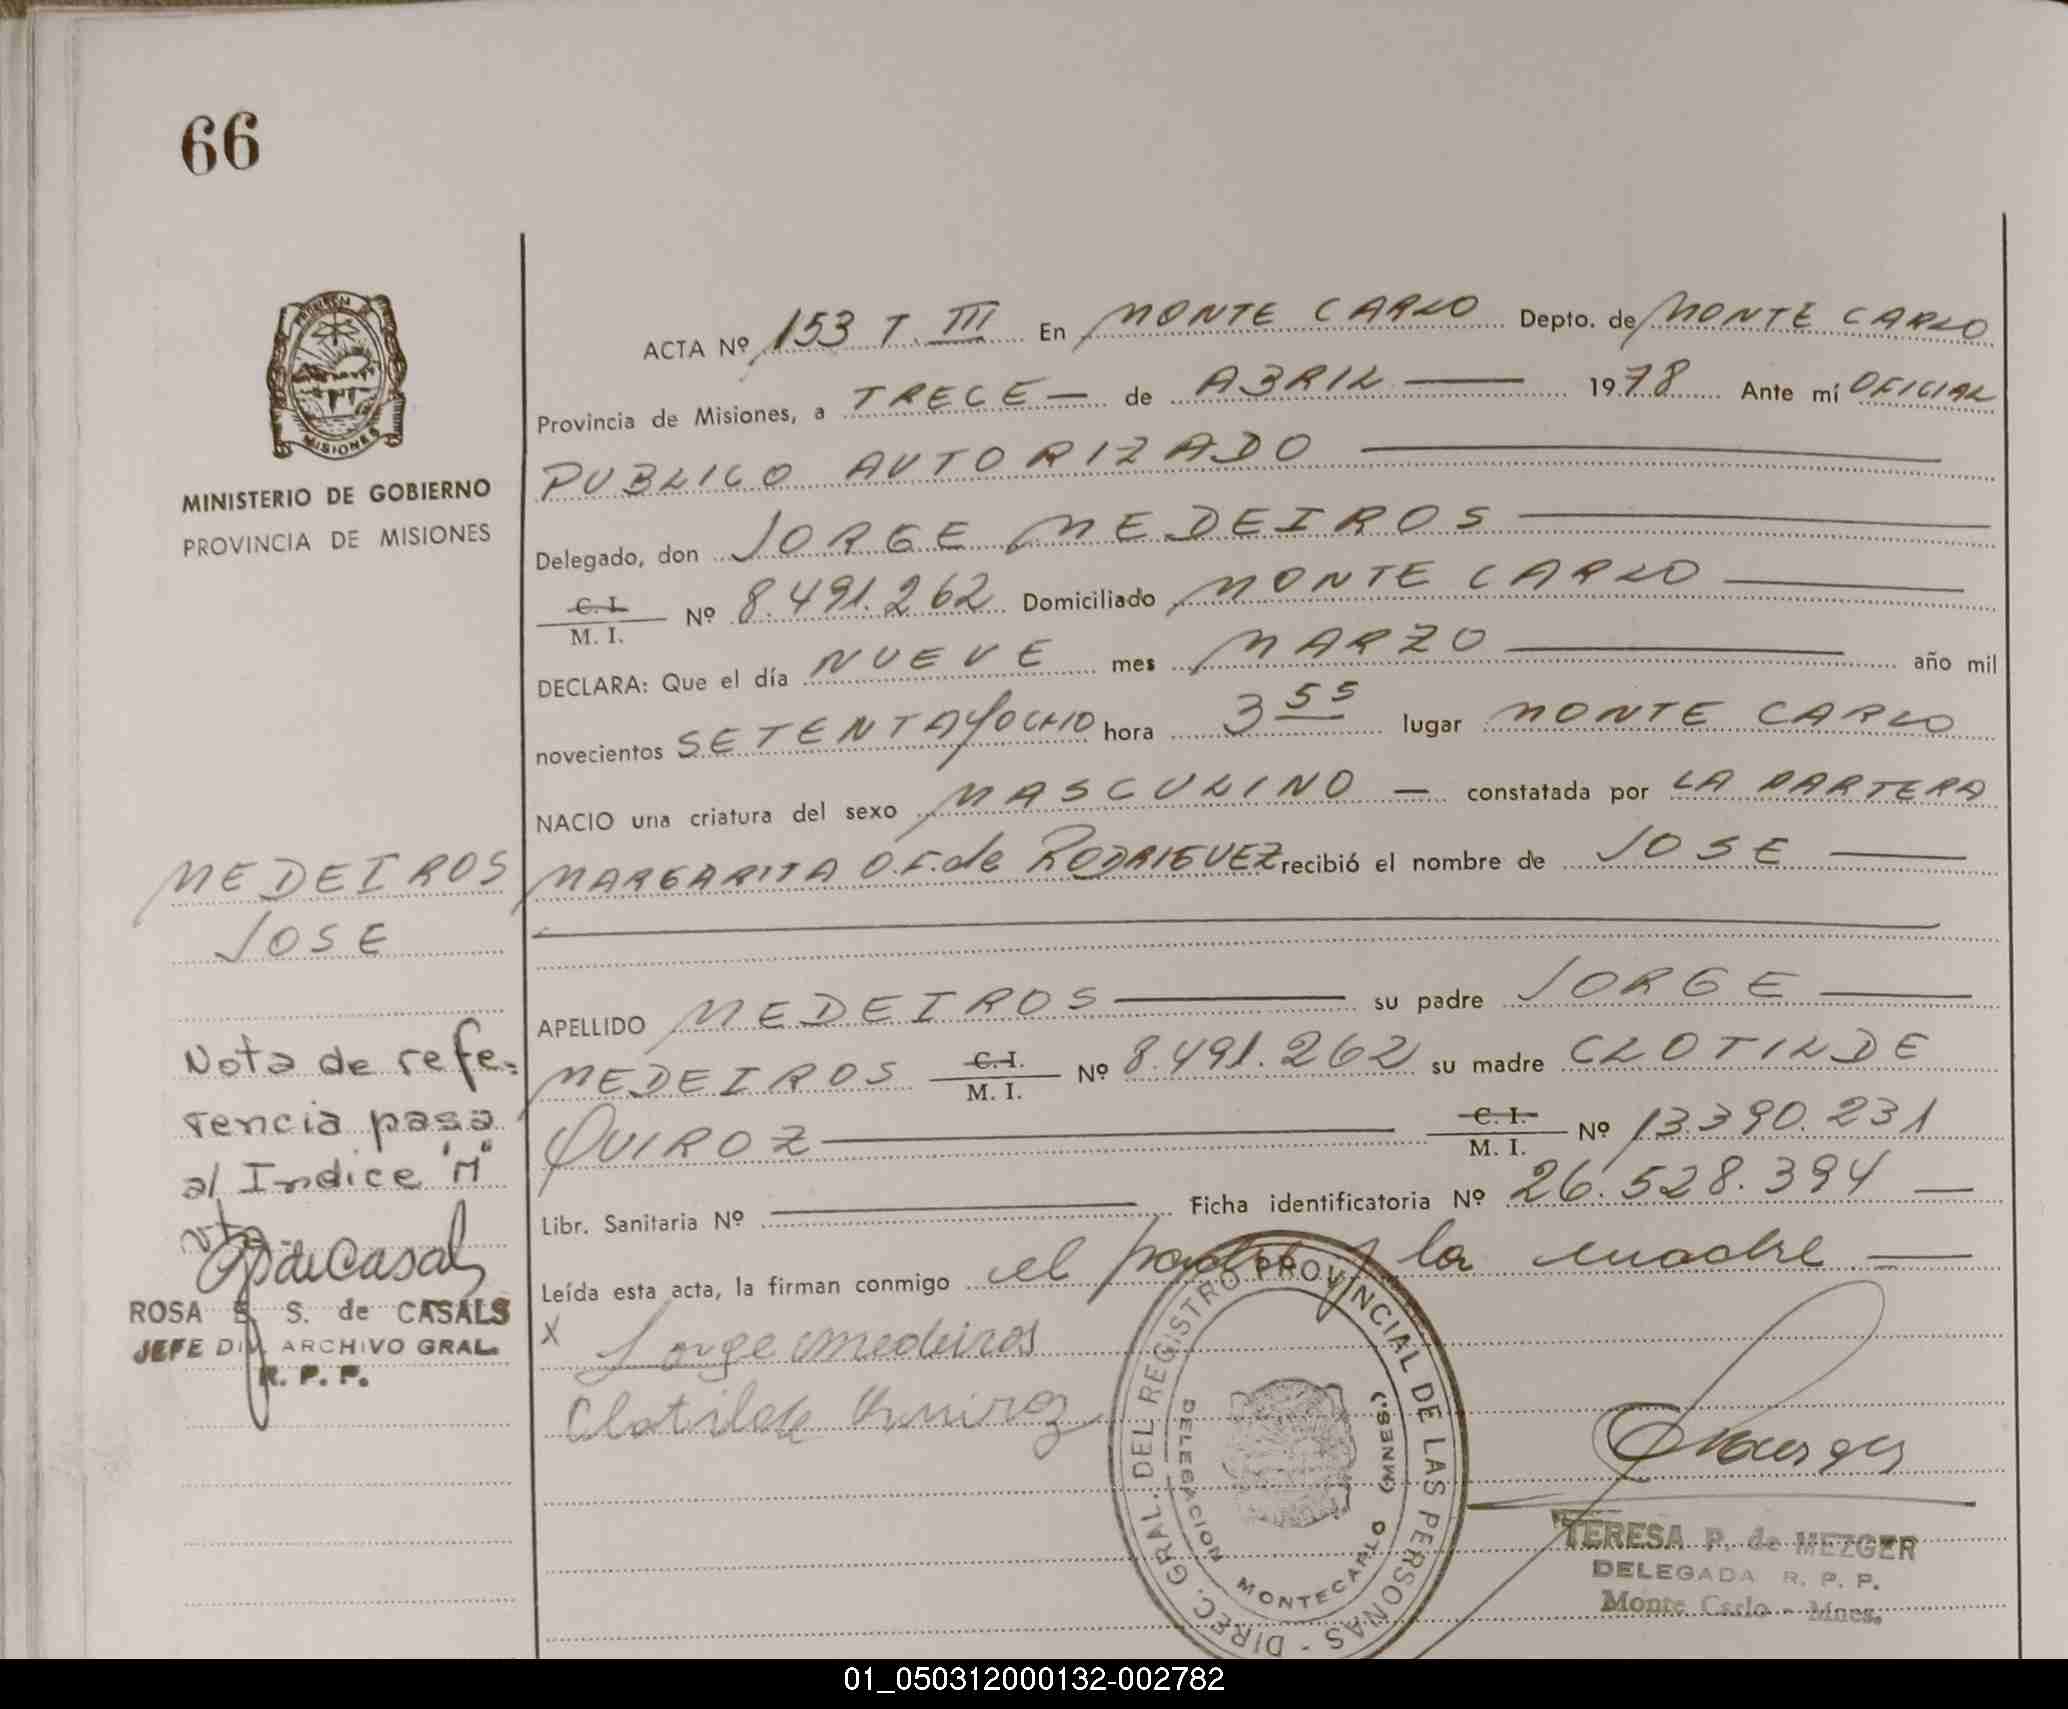 66
ACTA Nº 153 T. III En MONTE CARLO Depto. de MONTE CARLO
Provincia de Misiones, a TRECE — de ABRIL — 1978 Ante mí OFICIAL
PUBLICO AUTORIZADO
Delegado, don JORGE MEDEIROS
C. I. / M. I. Nº 8.491.262 Domiciliado MONTE CARLO
DECLARA: Que el día NUEVE mes MARZO año mil
novecientos SETENTA y OCHO hora 3 55 lugar MONTE CARLO
NACIO una criatura del sexo MASCULINO — constatada por LA PARTERA
MARGARITA O.F. de RODRIGUEZ recibió el nombre de JOSE
APELLIDO MEDEIROS su padre JORGE
MEDEIROS C. I. / M. I. Nº 8.491.262 su madre CLOTILDE
QUIROZ C. I. / M. I. Nº 13.390.231
Libr. Sanitaria Nº — Ficha identificatoria Nº 26.528.394
Leída esta acta, la firman conmigo el padre y la madre
X Jorge Medeiros
Clotilde Quiroz
PROVINCIA
MISIONES
MINISTERIO DE GOBIERNO
PROVINCIA DE MISIONES
MEDEIROS
JOSE
Nota de refe-
rencia pasa
al Indice "M"
de Casals
ROSA E. S. de CASALS
JEFE DIV. ARCHIVO GRAL.
R. P. P.
DIREC. GRAL. DEL REGISTRO PROVINCIAL DE LAS PERSONAS -
DELEGACION MONTECARLO (MNES.)
TERESA P. de MEZGER
DELEGADA R. P. P.
Monte Carlo - Mnes.
01_050312000132-002782